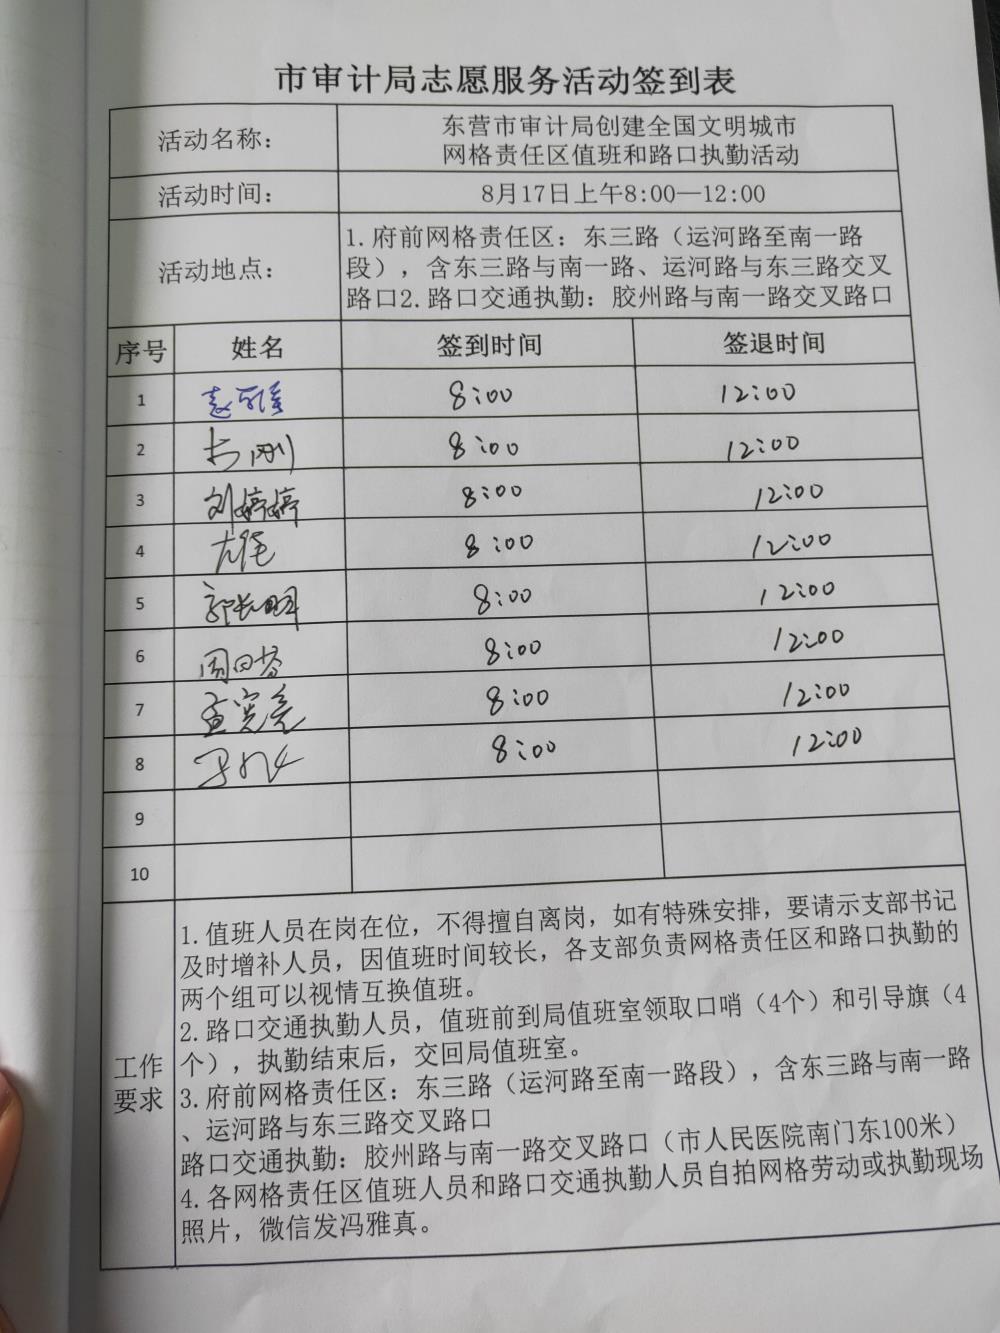 市审计局志愿服务活动签到表
活动名称：
东营市审计局创建全国文明城市
网格责任区值班和路口执勤活动
活动时间：
8月17日上午8:00—12:00
活动地点：
1.府前网格责任区：东三路（运河路至南一路
段），含东三路与南一路、运河路与东三路交叉
路口2.路口交通执勤：胶州路与南一路交叉路口
序号 姓名 签到时间 签退时间
1 8:00 12:00
2 8:00 12:00
3 刘婷婷 8:00 12:00
4 8:00 12:00
5 8:00 12:00
6 8:00 12:00
7 孟宪亮 8:00 12:00
8 8:00 12:00
9
10
工作
要求
1.值班人员在岗在位，不得擅自离岗，如有特殊安排，要请示支部书记
及时增补人员，因值班时间较长，各支部负责网格责任区和路口执勤的
两个组可以视情互换值班。
2.路口交通执勤人员，值班前到局值班室领取口哨（4个）和引导旗（4
个），执勤结束后，交回局值班室。
3.府前网格责任区：东三路（运河路至南一路段），含东三路与南一路
、运河路与东三路交叉路口
路口交通执勤：胶州路与南一路交叉路口（市人民医院南门东100米）
4.各网格责任区值班人员和路口交通执勤人员自拍网格劳动或执勤现场
照片，微信发冯雅真。